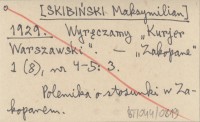 [SKIBIŃSKI Maksymilian]
1929. Wyręczamy „Kurjer
Warszawski". – „Zakopane"
1 (8), nr 4-5: 3.
Polemika o stosunki w Za-
kopanem.